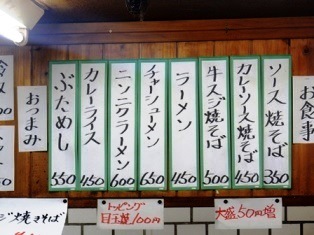 お食事
ソース焼そば 350
カレーソース焼そば 450
牛スジ焼そば 500
ラーメン 450
チャーシューメン 650
ニンニクラーメン 600
カレーライス 450
ぶためし 550
おつまみ
大盛50円増
トッピング
目玉焼100円
ジ焼きそば